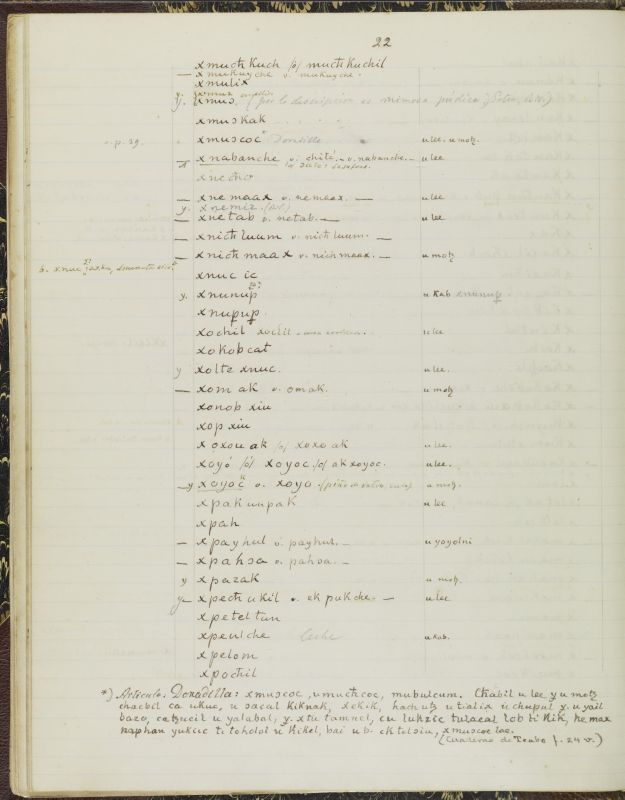 22
xmuch kuch /o/ much kuchil
— xmukuyche v. mukuyche.
xmulix
y. xmus (por la descripcion es mimosa pudica
xmuskak
v. p. 29. xmuscoc* Doradilla u lee. u motz.
xnabanche v. chité. — v. nabanche. — u lee
xnecho
— xnemaax v. nemaax. — u lee
y. xnemiz.
— xnetab v. netab. — u lee
— xnich luum v. nich luum. —
— xnich maax v. nich maax. — u motz
6. xnuc
xnuc ic
y. xnunup u kab xnunup.
xnupup.
xochil xochil u lee
xokobcat
y xolte xnuc. u lee.
— xom ak v. omak. u motz
xonob xiu
xop xiu
xoxou ak /o/ xoxo ak u lee.
xoyó /o/ xoyoc /o/ ak xoyoc. u lee.
— y xoyoc v. xoyo u motz.
xpakumpak u lee
xpah
— xpayhul v. payhul. — u yoyolni
— xpahsa v. pahsa. —
y xpazak u motz.
y — xpech ukil v. ek pukche. — u lee
xpeteltun
xpeulche Leche u kab.
xpelom
xpochil
*) Articulo. Doradilla: xmuscoc, umuchcoc, mubulcum. Chabil u lee y u motz
chacbil ca ukuc, u sacal kiknak, xekik, hach utz utialix u chupul y u yail
bazo, catzucil u yalabal, y. xtu tamnel, cu lukzic tulacal lob ti kik, he max
naphan yukic ti toholol u kikel, bai u b. cktelsiu, xmuscoc lae.
(Cuaderno de Teabo f. 24 v.)